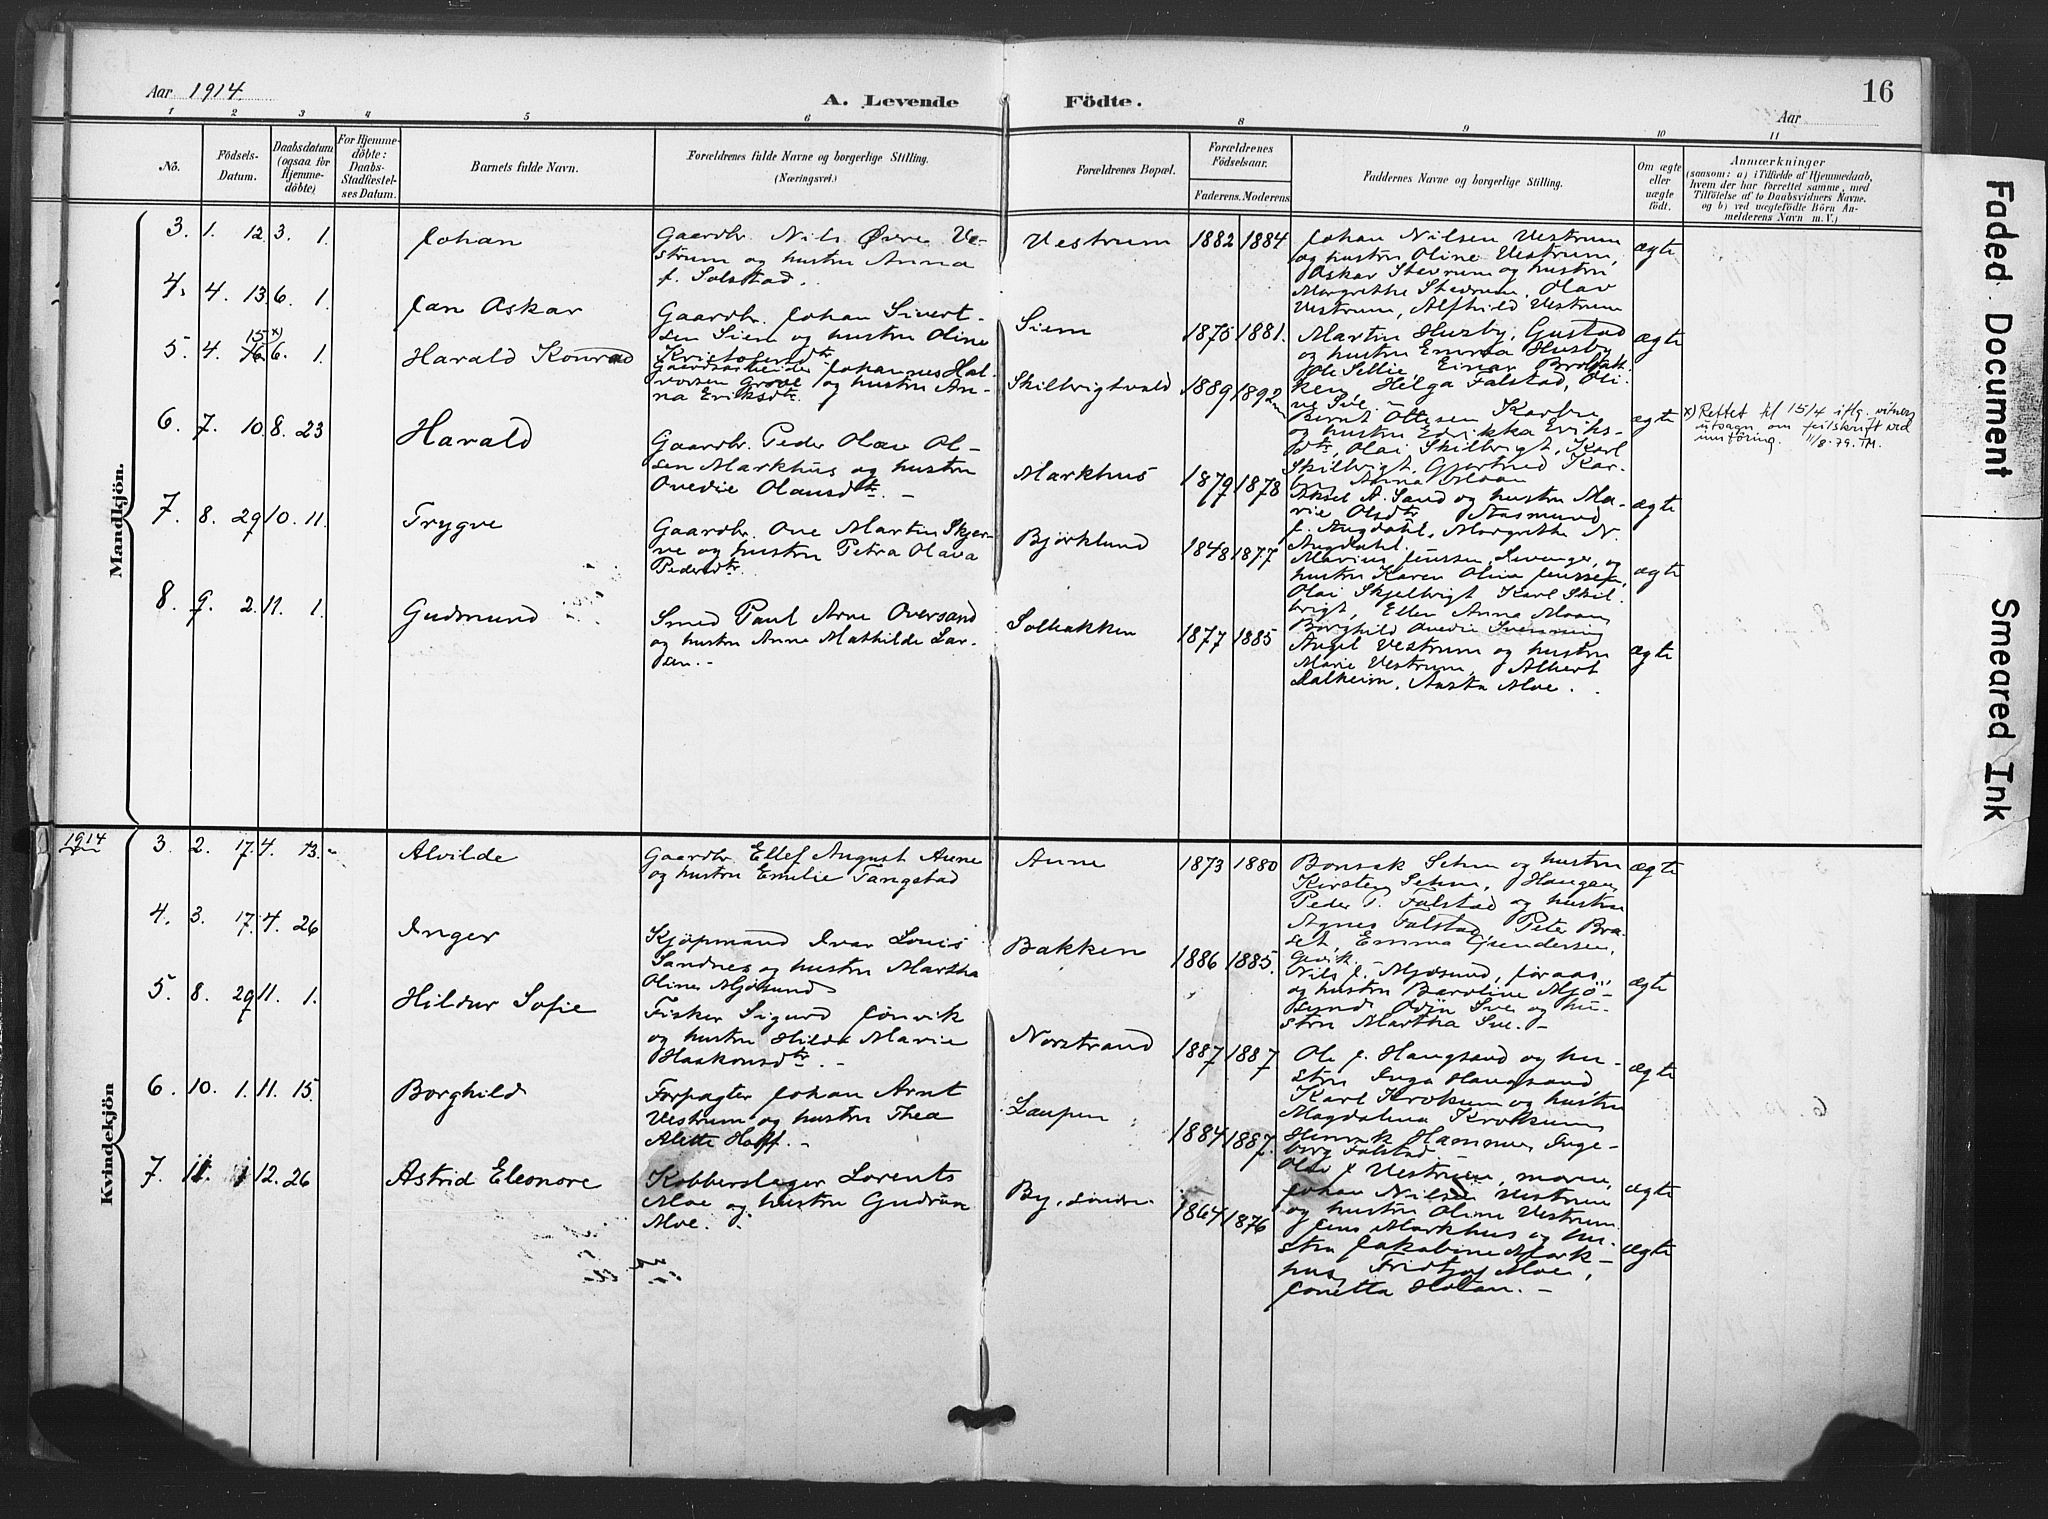 Aar 1914.
A. Levende Födte.
Aar
16
1 2 3 4 5 6 8 9 10 11
No.
Födsels-Datum.
Daabsdatum (ogsaa for Hjemme-döbte)
For Hjemme-döbte: Daabs-Stadfæstel-ses Datum.
Barnets fulde Navn.
Forældrenes fulde Navne og borgerlige Stilling. (Næringsvei.)
Forældrenes Bopæl.
Forældrenes Födselsaar.
Faderens. Moderens.
Faddernes Navne og borgerlige Stilling.
Om ægte eller uægte födt.
Anmærkninger
(saasom: a) i Tilfælde af Hjemmedaab, hvem der har forrettet samme, med Tilföielse af to Daabsvidners Navne. og b) ved uægtefödte Börn An-melderens Navn m. V.)
Mandkjön.
3. 1. 12. 3. 1.
Johan
Gaardbr. Nils Övre Ve-
strum og hustru Anna
f. Solstad.
Vestrum
1882 1884
Johan Nilsen Vestrum
og hustru Oline Vestrum,
Oskar Stevrum og hustru
Margrethe Stevrum, Olav
Vestrum, Alfhild Vestrum
ægte
4. 4. 13. 6. 1.
Jan Oskar
Gaardbr. Johan Sivert-
sen Siem og hustru Oline
Kristofersdtr
Siem
1875 1881.
Martin Husby, Gustad
og hustru Emma Husby
Ole Sellie, Einar Brolfalk
ken, Helga Falstad, Oli-
ne Sve.
ægte
5. 4. 15 x) 16 6. 1.
Harald Konrad
Gaardsarbeider Johannes Hal-
vorsen Grove og hustru An-
na Eriksdtr.
Skilbrigtvald
1889 1892
Bernt Ottesen Karbu
og hustru Edrikka Eriks-
dtr, Olai Skilbrigt, Karl
Skilbrigt, Gjertrud Kar-
bu, Anna Moan
ægte
x) Rettet til 15/4 iflg. vitners
utsagn om feilskrift ved
innföring. 11/8-79. TM.
6. 7. 10. 8. 23
Harald
Gaardbr. Peder Olav Ol-
sen Markhus og hustru
Ovedie Olausdtr. -
Markhus
1879 1878
Aksel A. Sand og hustru Ma-
rie Olsdtr, Aasmund
J. Augdahl, Margrethe N.
Augdahl.
ægte
7. 8. 29. 10. 11.
Trygve
Gaardbr. Ove Martin Skjer-
ve og hustru Petra Olava
Pedersdtr.
Björklund
1848 1877
Marius Jenssen, Levanger, og
hustru Karen Oline Jenssen,
Olai Skjelbrigt, Karl Skil-
brigt, Ellen Anna Moan,
Borghild Ovedie Svenning
ægte
8. 9. 2. 11. 1.
Gudmund
Smed Paul Arne Oversand
og hustru Anne Mathilde Lar-
sen. -
Solbakken
1877 1885
Angel Vestrum og hustru
Marie Vestrum, Albert
Dalheim, Aasta Moe.
ægte
1914
Kvindekjön
3. 2. 17. 4. 13.
Alvilde
Gaardbr. Ellef August Aune
og hustru Emilie Tangstad
Aune
1873 1880
Bonsak Sehm og hustru
Kirsten Sehm, Haugan,
Peder T. Falstad og hustru
Agnes Falstad, Peter Bra-
set, Emma Gundersen,
Gevik.
ægte
4. 3. 17. 4. 26
Inger
Kjöpmand Ivar Louis
Sandnes og hustru Martha
Oline Mjösund
Bakken
1886 1885.
Nils J. Mjösund, Joraas,
og hustru Beroline Mjö-
sund, Odin Sve og hu-
stru Martha Sve. -
ægte
5. 8. 29 11. 1.
Hildur Sofie
Fisker Sigurd Jönvik
og hustru Hilda Marie
Haakonsdtr. -
Norstrand
1887 1887
Ole J. Haugsand og hu-
stru Inga Haugsand,
Karl Krokum og hustru
Magdalena Krokum
ægte
6. 10. 1. 11. 15.
Borghild
Forpagter Johan Arnt
Vestrum og hustru Thea
Alette Hoff. -
Laupen
1884 1887.
Henrik Hammer, Inge-
borg Falstad,
Olai J. Vestrum,
Johan Nilsen Vestrum
og hustru Oline Vestrum
ægte
7. 11. 1 12. 26
Astrid Eleonore
Kobberslager Lorents
Moe og hustru Gudrun
Moe.
By, söndre
1864 1876
Jens Markhus og hu-
stru Jakobine Mark-
hus, Fridtjof Moe,
Jonetta Holan. -
ægte
Faded Document
Smeared Ink